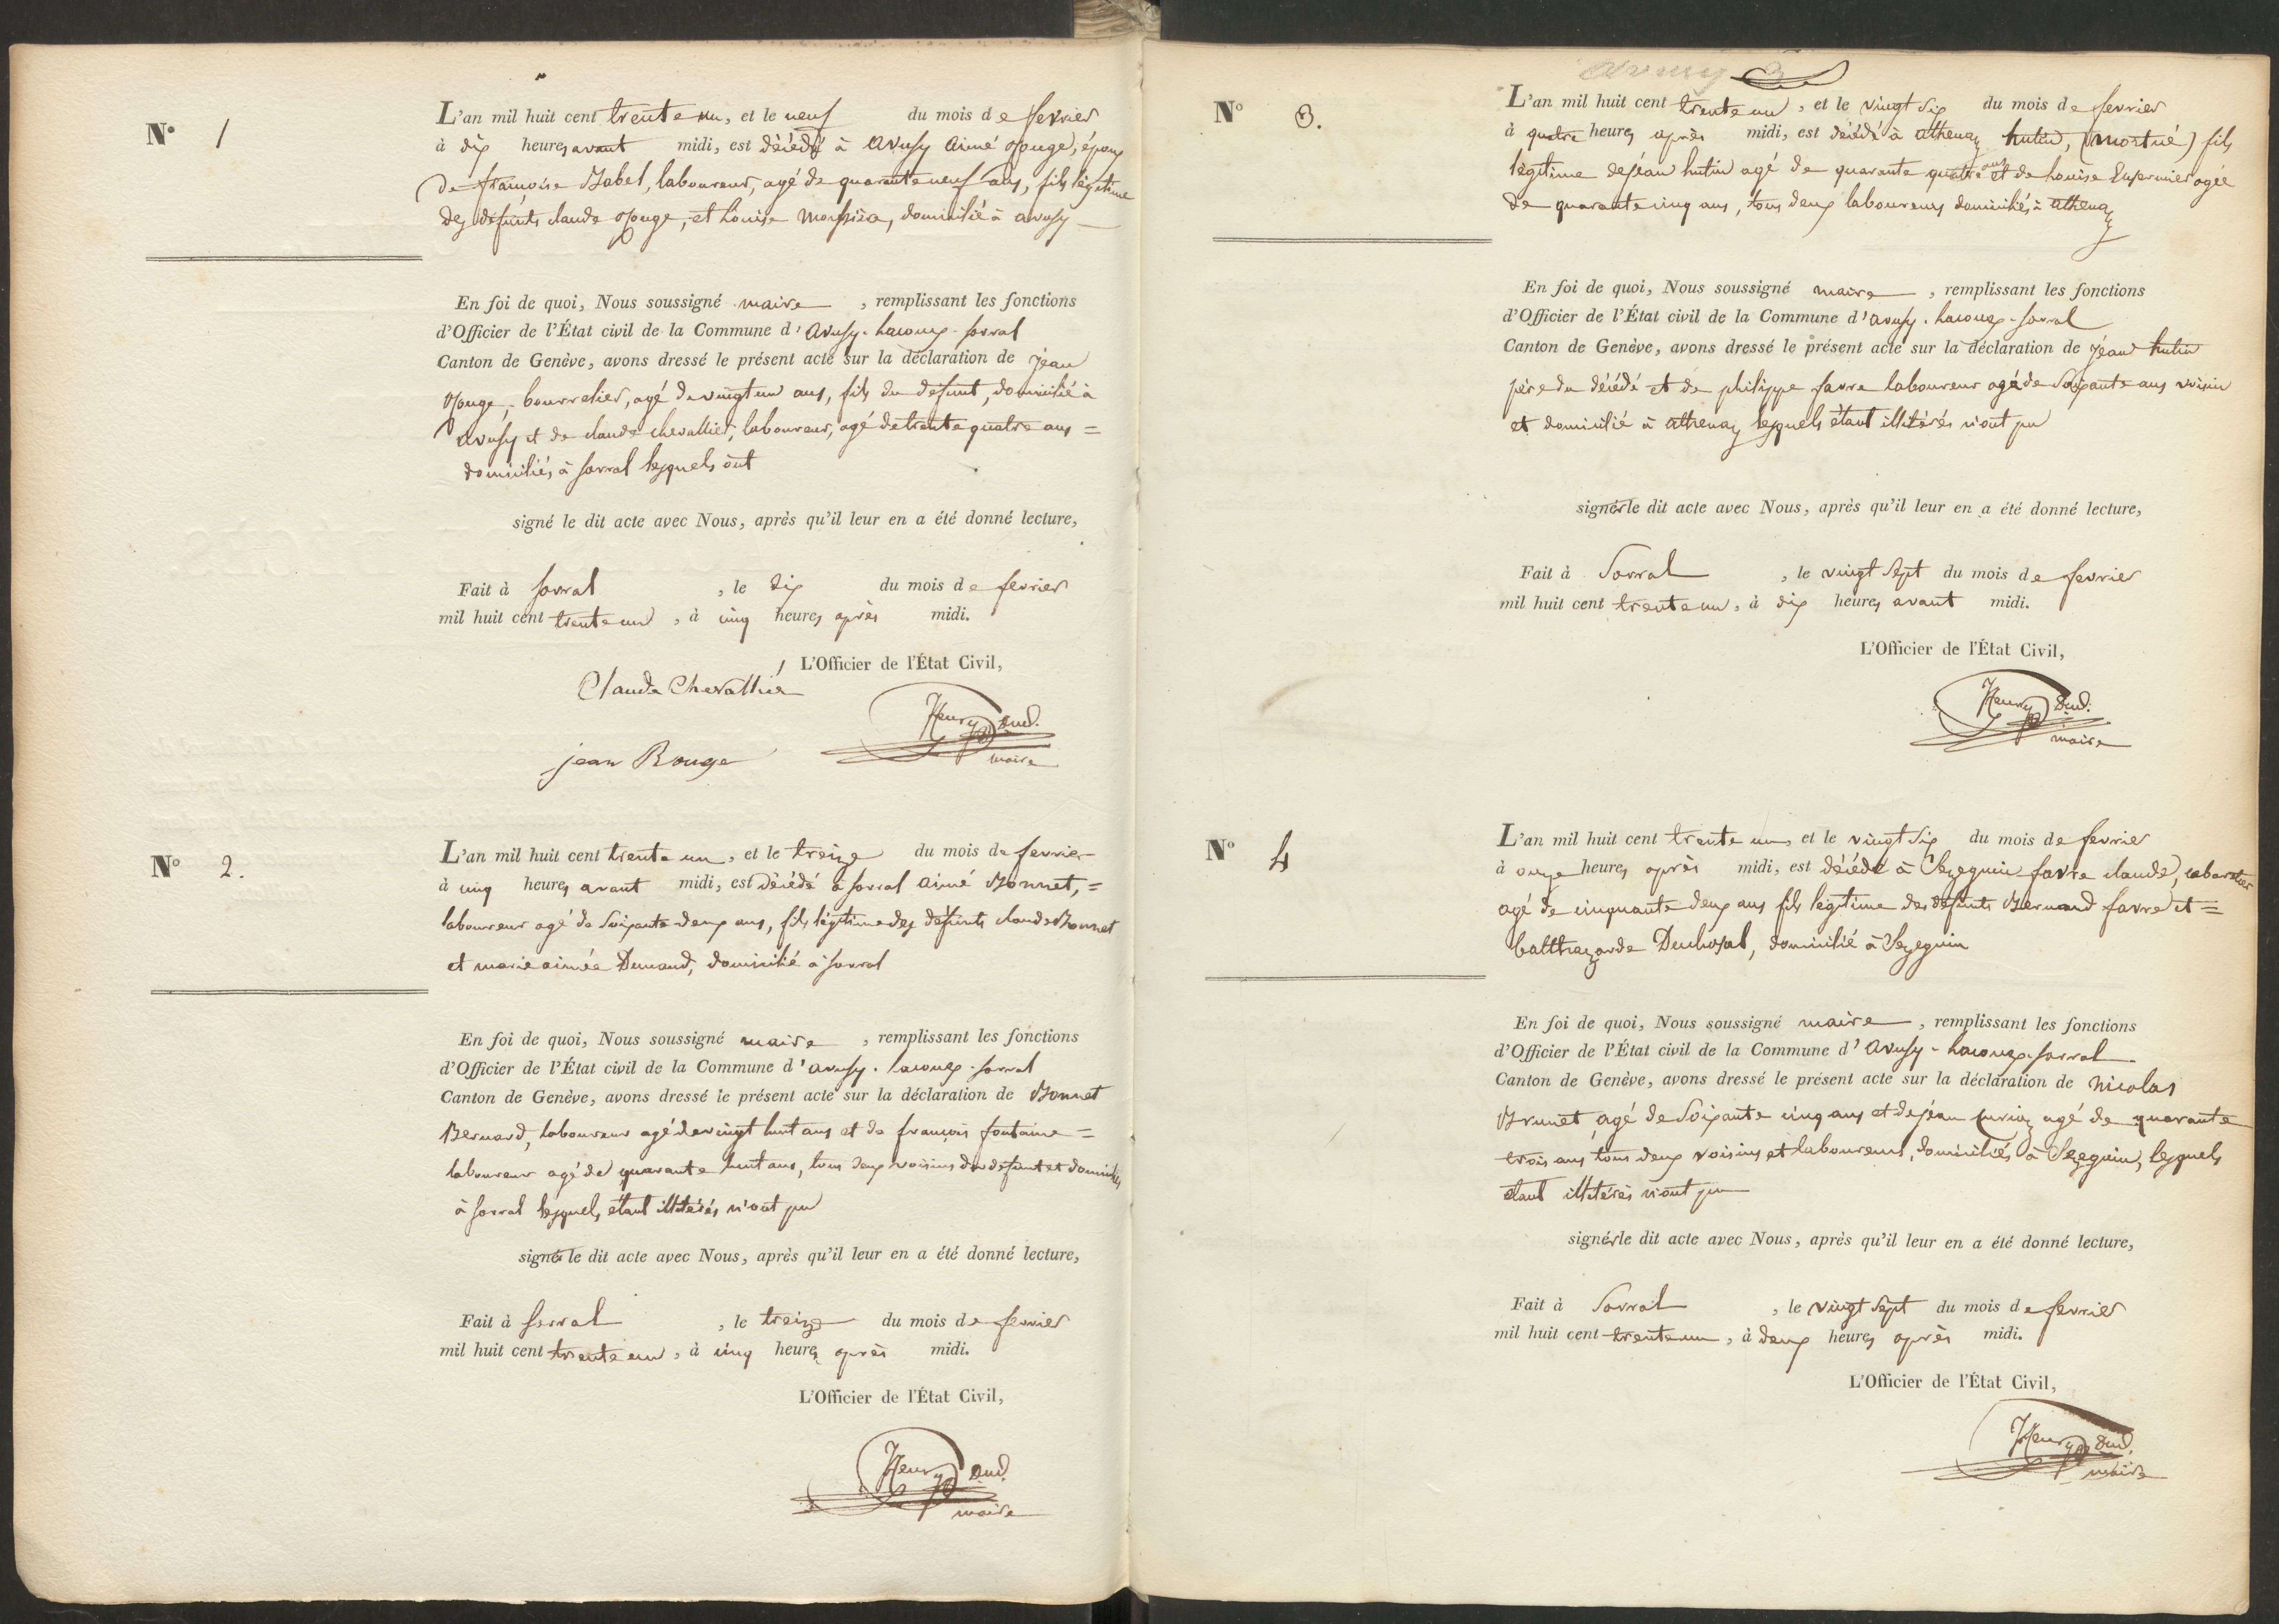 N° 1
L'an mil huit cent trente un, et le neuf du mois de fevrier
à dix heures avant midi, est décédé à avusy aimé Rouge, époux
de françoise Babel, laboureur, agé de quarante neuf ans, fils légitime
des défunts claude Rouge, et Louise domicilié à avusy
En foi de quoi, Nous soussigné maire, remplissant les fonctions
d'Officier de l'État civil de la Commune d'avusy. Laconnex. sorral
Canton de Genève, avons dressé le présent acte sur la déclaration de jean
Rouge, bourrelier, agé de vingt un ans, fils du defunt, domicilié à
avusy et de claude chevallier, laboureur, agé de trente quatre ans =
domiciliés à sorral lesquels ont
signé le dit acte avec Nous, après qu'il leur en a été donné lecture,
Fait à sorral, le dix du mois de fevrier
mil huit cent trente un, à cinq heures après midi.
L'Officier de l'État Civil,
Claude Chevallier
Henry Dud.
maire
jean Rouge
N° 2.
L'an mil huit cent trente un, et le treize du mois de fevrier
à cinq heures avant midi, est décédé à sorral aimé Bonnet, =
laboureur agé de Soixante deux ans, fils légitime des défunts claude Bonnet
et marie aimée Dunand, domicilié à sorral
En foi de quoi, Nous soussigné maire, remplissant les fonctions
d'Officier de l'État civil de la Commune d'avusy. laconnex. sorral
Canton de Genève, avons dressé le présent acte sur la déclaration de Bonnet
Bernard, laboureur agé de vingt huit ans et de françois fontaine =
laboureur agé de quarante huit ans, tous deux voisins du defunt et domiciliés
à sorral lesquels étant illitérés n'ont pu
signér le dit acte avec Nous, après qu'il leur en a été donné lecture,
Fait à sorral, le treize du mois de fevrier
mil huit cent trente un, à cinq heures après midi.
L'Officier de l'État Civil,
Henry Dud.
maire
avusy
N° 3.
L'an mil huit cent trente un, et le vingt Six du mois de fevrier
à quatre heures après midi, est décédé à athenaz hutin, (mortné) fils
légitime de jéan hutin agé de quarante quatre ans et de Louise agée
de quarante cinq ans, tous deux laboureurs domiciliés à athenaz
En foi de quoi, Nous soussigné maire, remplissant les fonctions
d'Officier de l'État civil de la Commune d'avusy. Laconnex. sorral
Canton de Genève, avons dressé le présent acte sur la déclaration de jéan hutin
père du décédé et de philippe favre laboureur agé de Soixante ans voisin
et domicilié à athenaz lesquels étant illitérés n'ont pu
signér le dit acte avec Nous, après qu'il leur en a été donné lecture,
Fait à Sorral, le vingt Sept du mois de fevrier
mil huit cent trente un, à dix heures avant midi.
L'Officier de l'État Civil,
Henry Dud.
maire
N° 4
L'an mil huit cent trente un, et le vingt Six du mois de fevrier
à onze heures après midi, est décédé à Sezeguin favre claude, cabaretier
agé de cinquante deux ans fils légitime des défunts Bernard favre et =
balthazarde Duchosal, domicilié à Sezeguin
En foi de quoi, Nous soussigné maire, remplissant les fonctions
d'Officier de l'État civil de la Commune d'avusy. Laconnex. sorral
Canton de Genève, avons dressé le présent acte sur la déclaration de Nicolas
Brunet agé de Soixante cinq ans et de jéan curiaz agé de quarante
trois ans tous deux voisins et laboureurs, domiciliés à Sezeguin, lesquels
étant illitérés n'ont pu
signér le dit acte avec Nous, après qu'il leur en a été donné lecture,
Fait à Sorral, le vingt Sept du mois de fevrier
mil huit cent trente un, à deux heures après midi.
L'Officier de l'État Civil,
Henry Dud.
maire